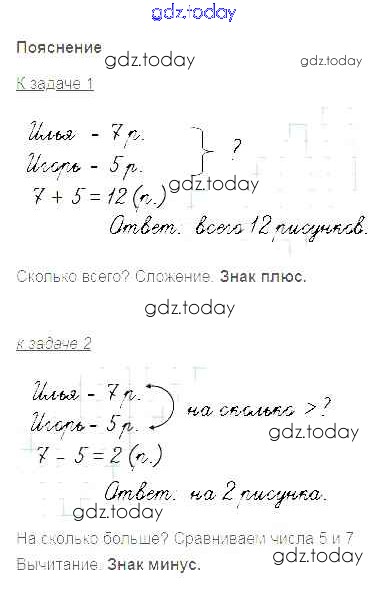 gdz.today
Пояснение
gdz.today gdz.today
К задаче 1
Илья - 7 р.
Игорь - 5 р. ?
gdz.today
7 + 5 = 12 (р.)
Ответ: всего 12 рисунков.
Сколько всего? Сложение. Знак плюс.
gdz.today
к задаче 2
Илья - 7 р.
Игорь - 5 р. на сколько > ?
gdz.today
7 - 5 = 2 (р.)
Ответ: на 2 рисунка.
gdz.today
На сколько больше? Сравниваем числа 5 и 7
gdz.today
Вычитание. Знак минус.